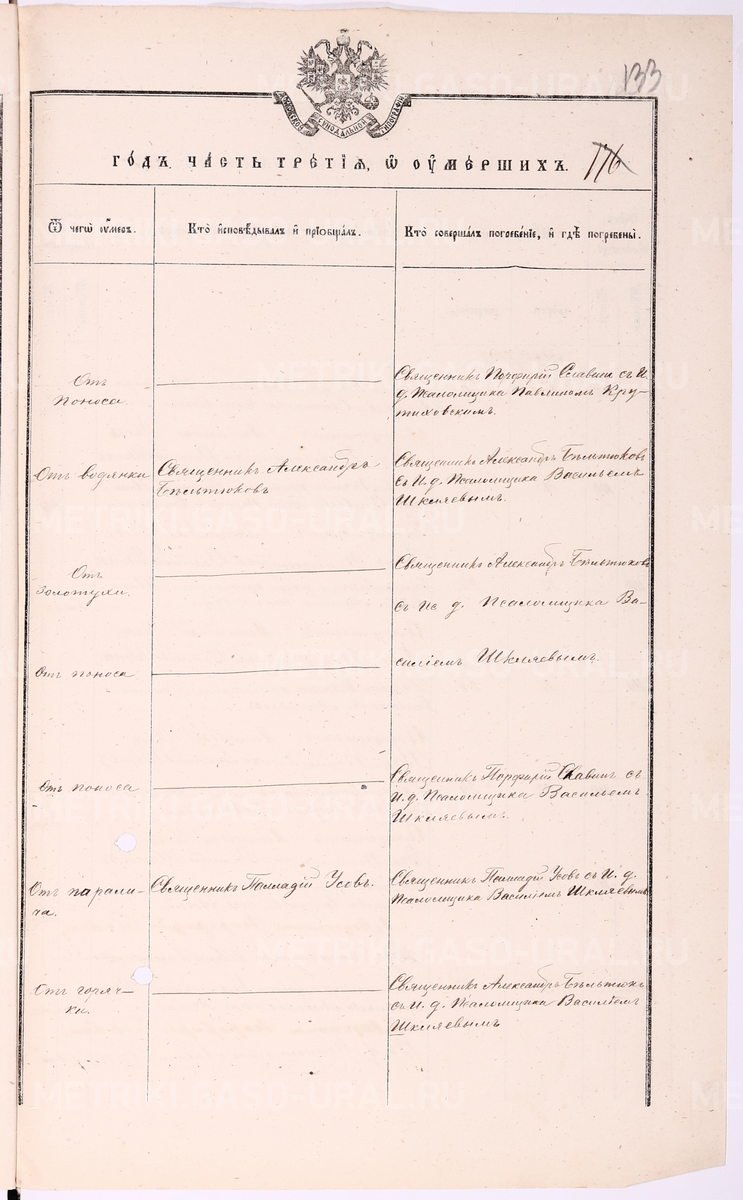 133
МОСКОВСКОЙ СѴНОДАЛЬНОЙ ТИПОГРАФІИ
ГОДЪ, ЧАСТЬ ТРЕТІЯ, Ѿ ОУМЕРШИХЪ. 176
Ѿ чегѡ оумеръ. Кто исповѣдывалъ и пріобщалъ. Кто совершалъ погребеніе, и гдѣ погребены.
Отъ
поноса
Священникъ Порфирій Славинъ съ И.
д. Псаломщика Павлиномъ Кру-
тиховскимъ.
Отъ водянки
Священникъ Александръ
Бѣльтюковъ
Священникъ Александръ Бѣльтюковъ
съ И. д. Псаломщика Васильемъ
Шкляевымъ.
Отъ
золотухи.
Отъ поноса
Священникъ Александръ Бѣльтюковъ
съ Ис д. Псаломщика Ва-
силіемъ Шкляевымъ.
Отъ поноса
Священникъ Порфирій Славинъ съ
И. д. Псаломщика Васильемъ
Шкляевымъ.
Отъ парали-
ча.
Священникъ Палладій Усовъ.
Священникъ Палладій Усовъ съ И. д.
Псаломщика Василіемъ Шкляевымъ
Отъ горяч-
ки.
Священникъ Александръ Бѣльтюковъ
съ И. д. Псаломщика Василіемъ
Шкляевымъ
METRIKI.GASO-URAL.RU